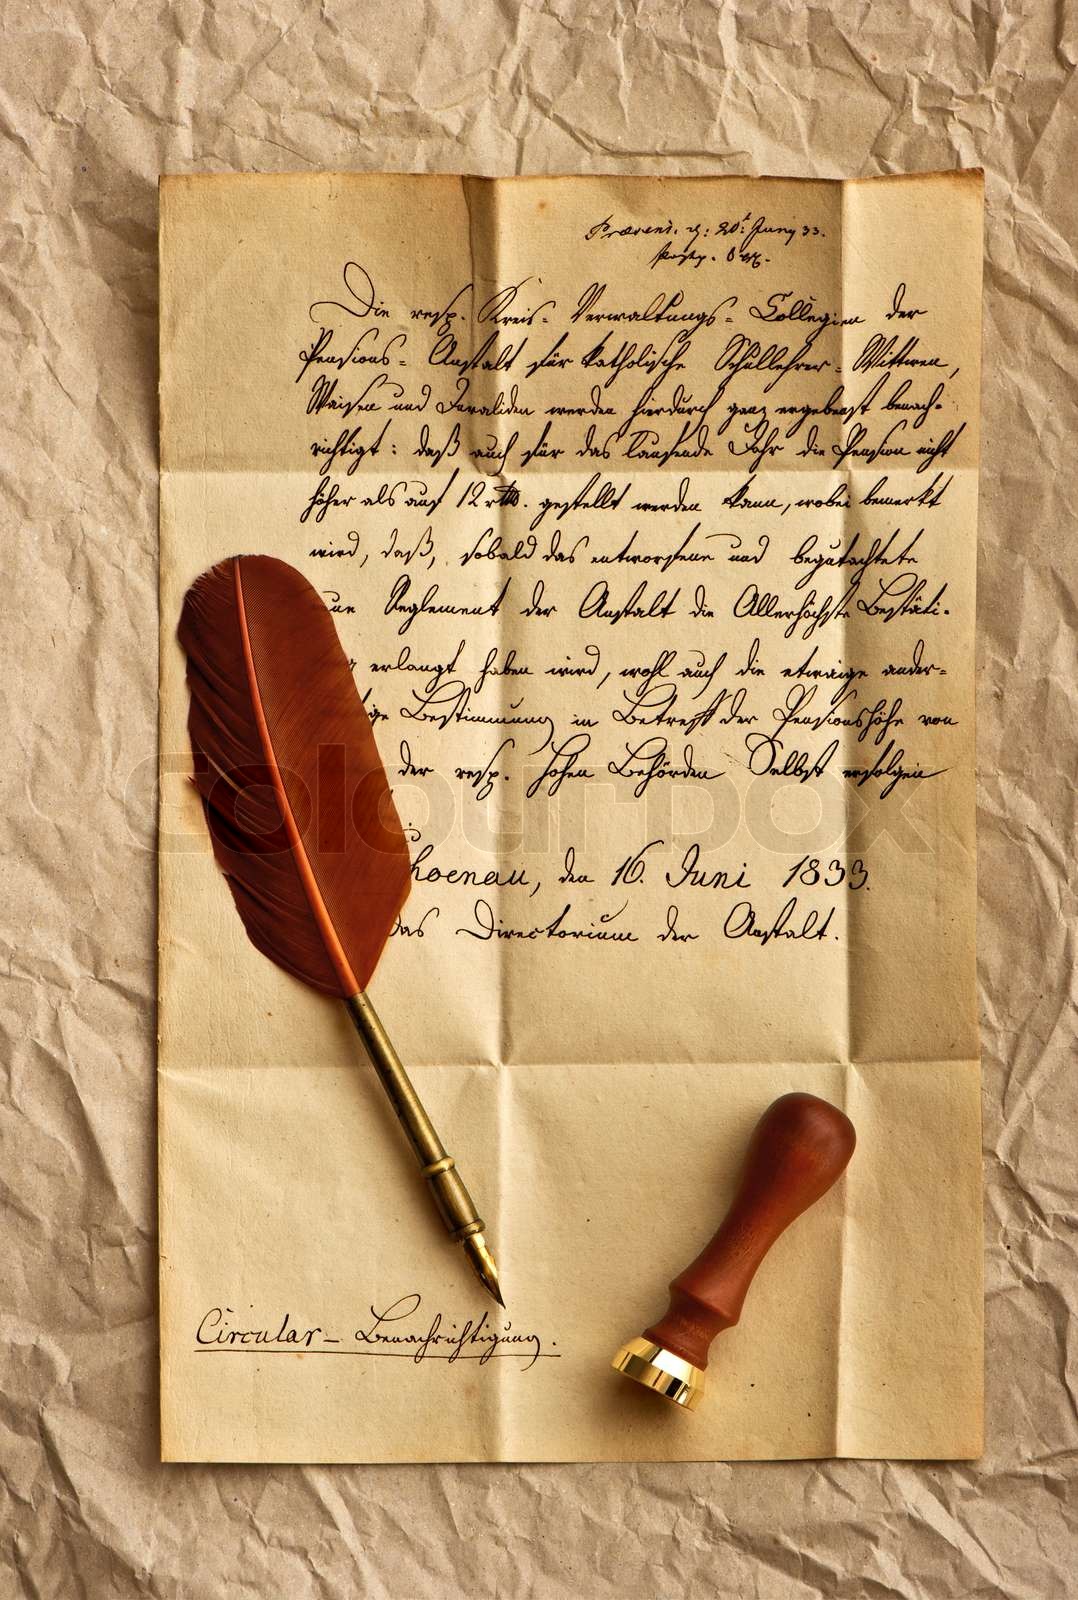 Præsent. d: 20t Juny 33.
Die resp. Kreis- Verwaltungs- Collegien der
Pensions- Anstalt für katholische Schullehrer- Wittwen,
Waisen und Invaliden werden hierdurch ganz ergebenst benach-
richtigt: daß auch für das laufende Jahr die Pension nicht
höher als auf 12 rtl. gestellt werden kann, wobei bemerkt
wird, daß, sobald das entworfene und begutachtete
Reglement der Anstalt die Allerhöchste Bestäti-
erlangt haben wird, wohl auch die etwaige ander-
Bestimmung in Betreff der Pensionshöhe von
der resp. hohen Behörden Selbst erfolgen
hoenau, den 16. Juni 1833.
Das Directorium der Anstalt.
Circular- Benachrichtigung.
colourbox